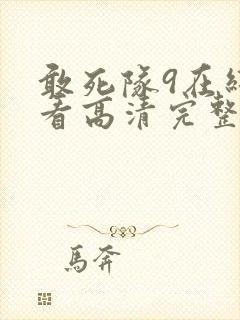 敢死隊9在
看高清完整
馬奔